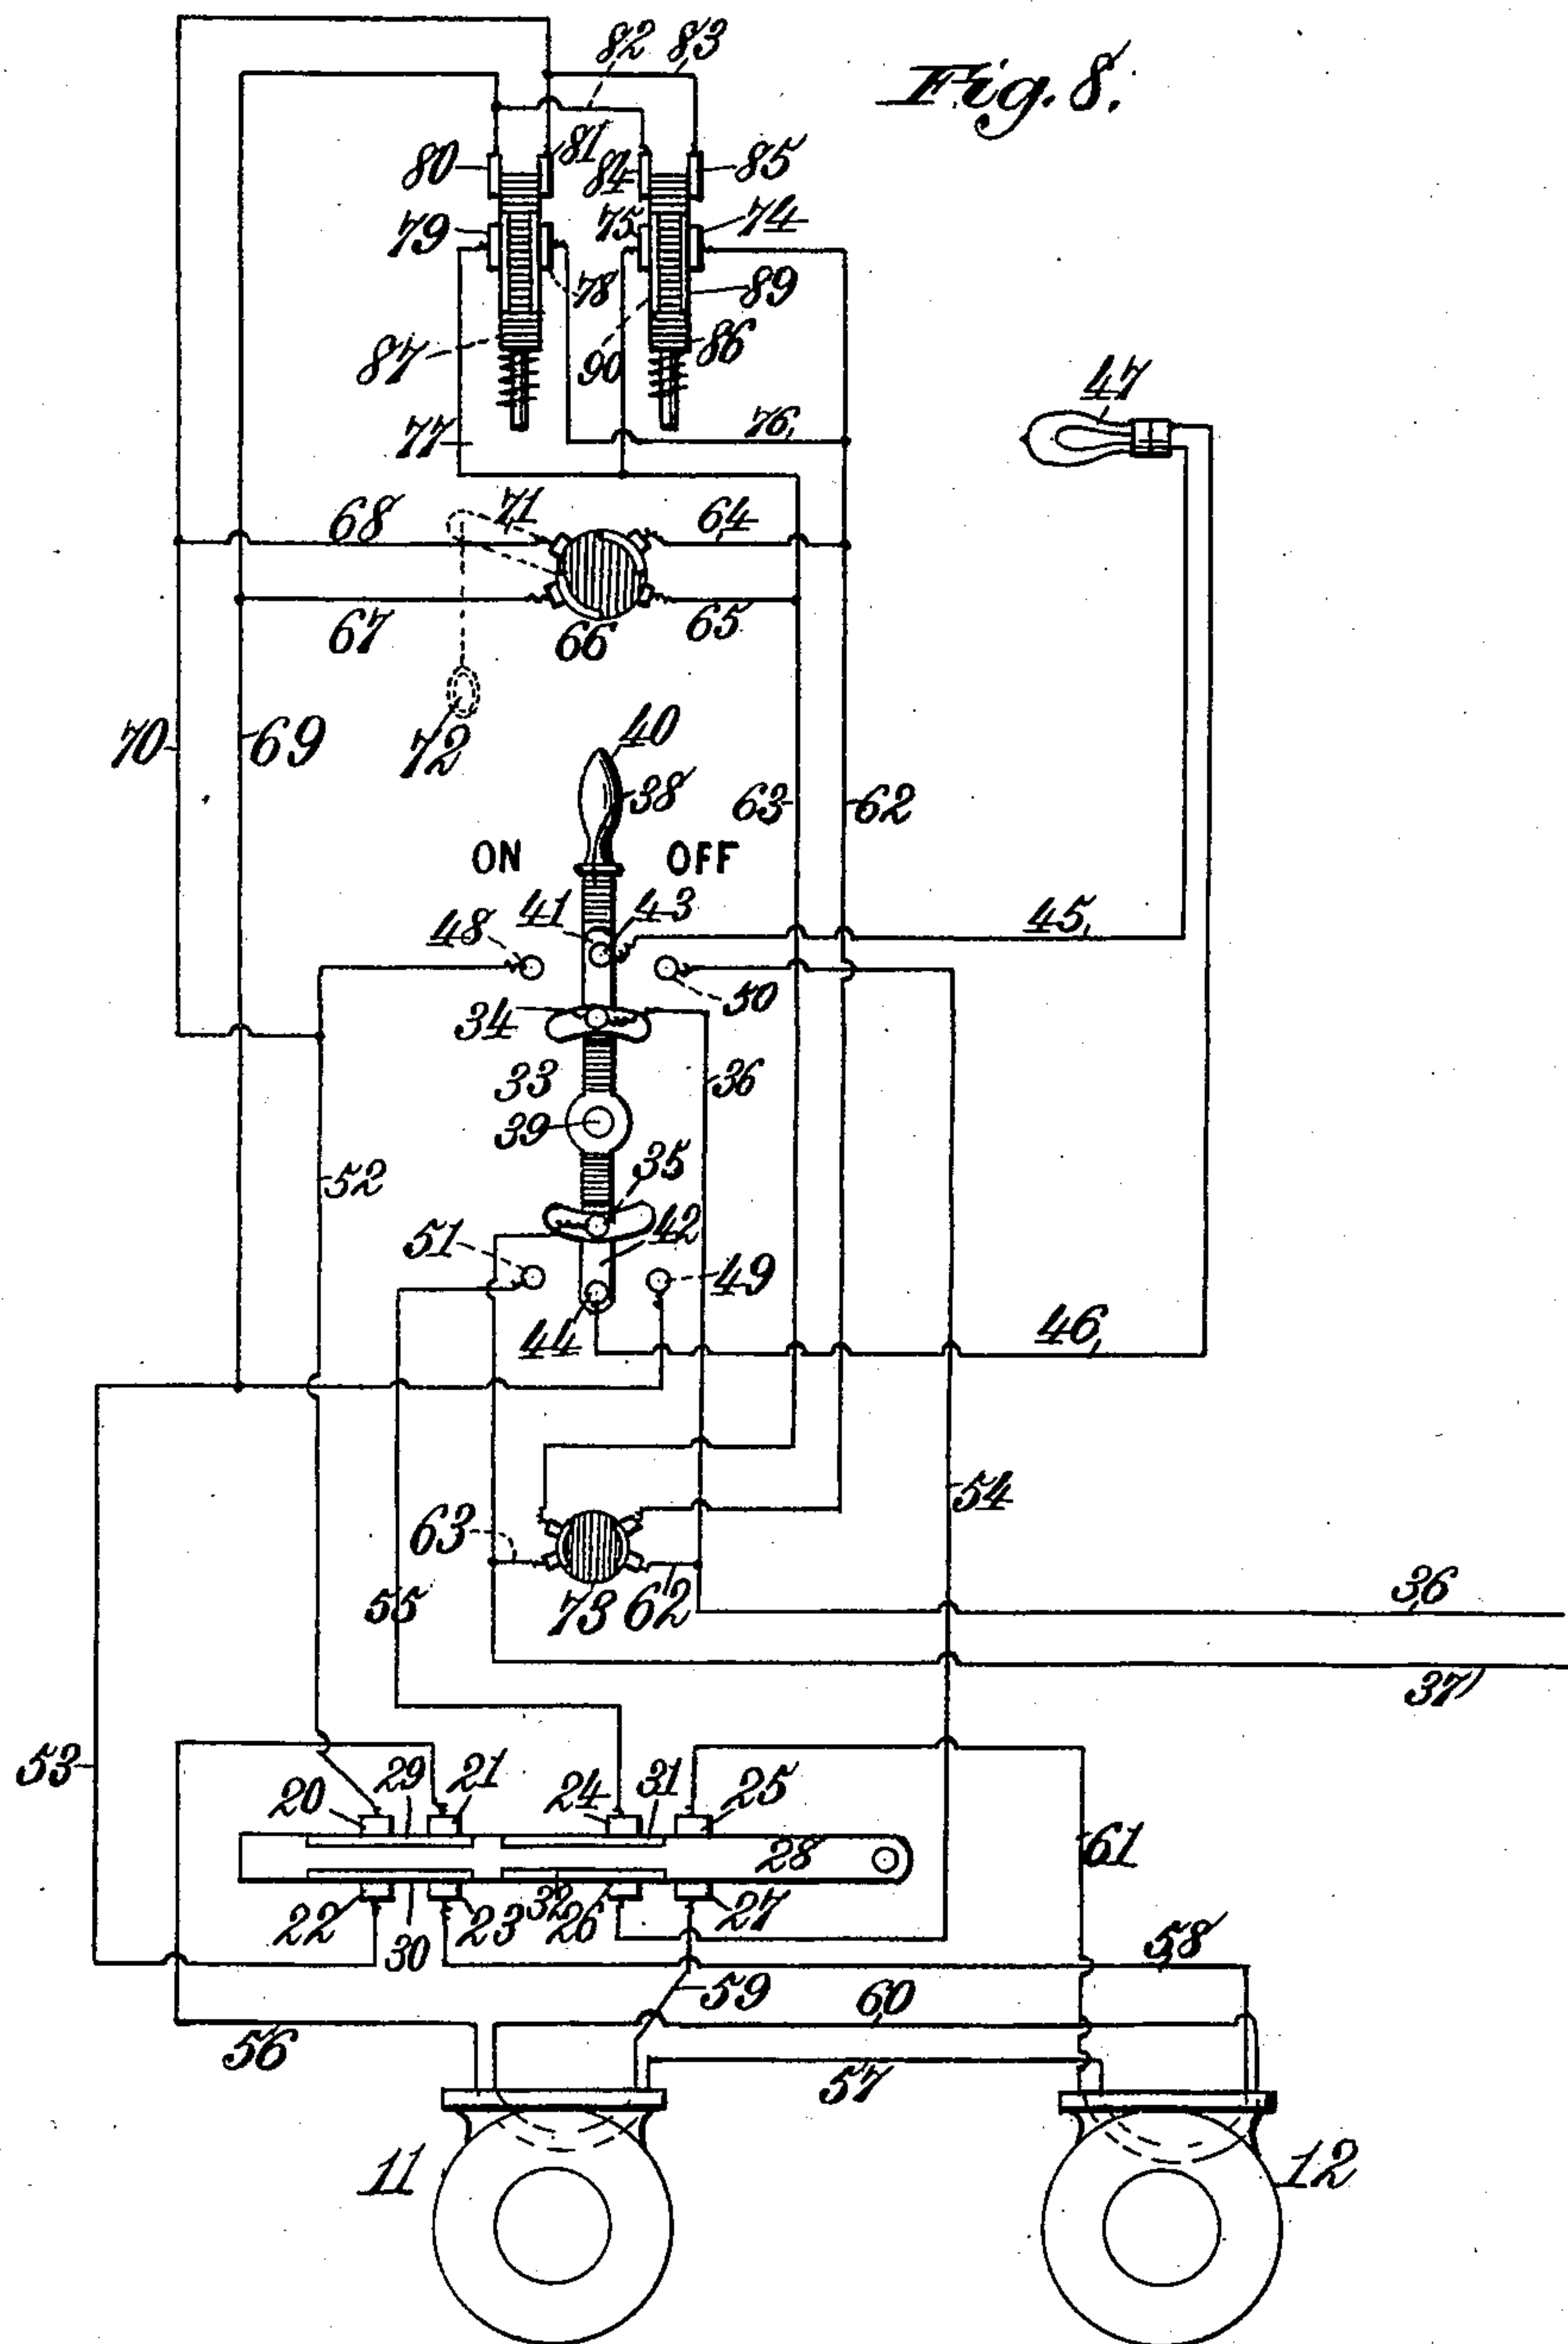 Fig. 8.
82 83
80 81 84 85
79 75 74
78 89
87 90 86
77 76
47
68 71 64
67 66 65
70 69 72
40
38
63 62
ON OFF
41 43 45
48
50
34
33 36
39
52 35
51 42 49
44 46
54
63
55 73 62
36
37
53
20 29 21 24 31 25
28 61
22 30 23 32 26 27
58
59 60
56 57
11 12